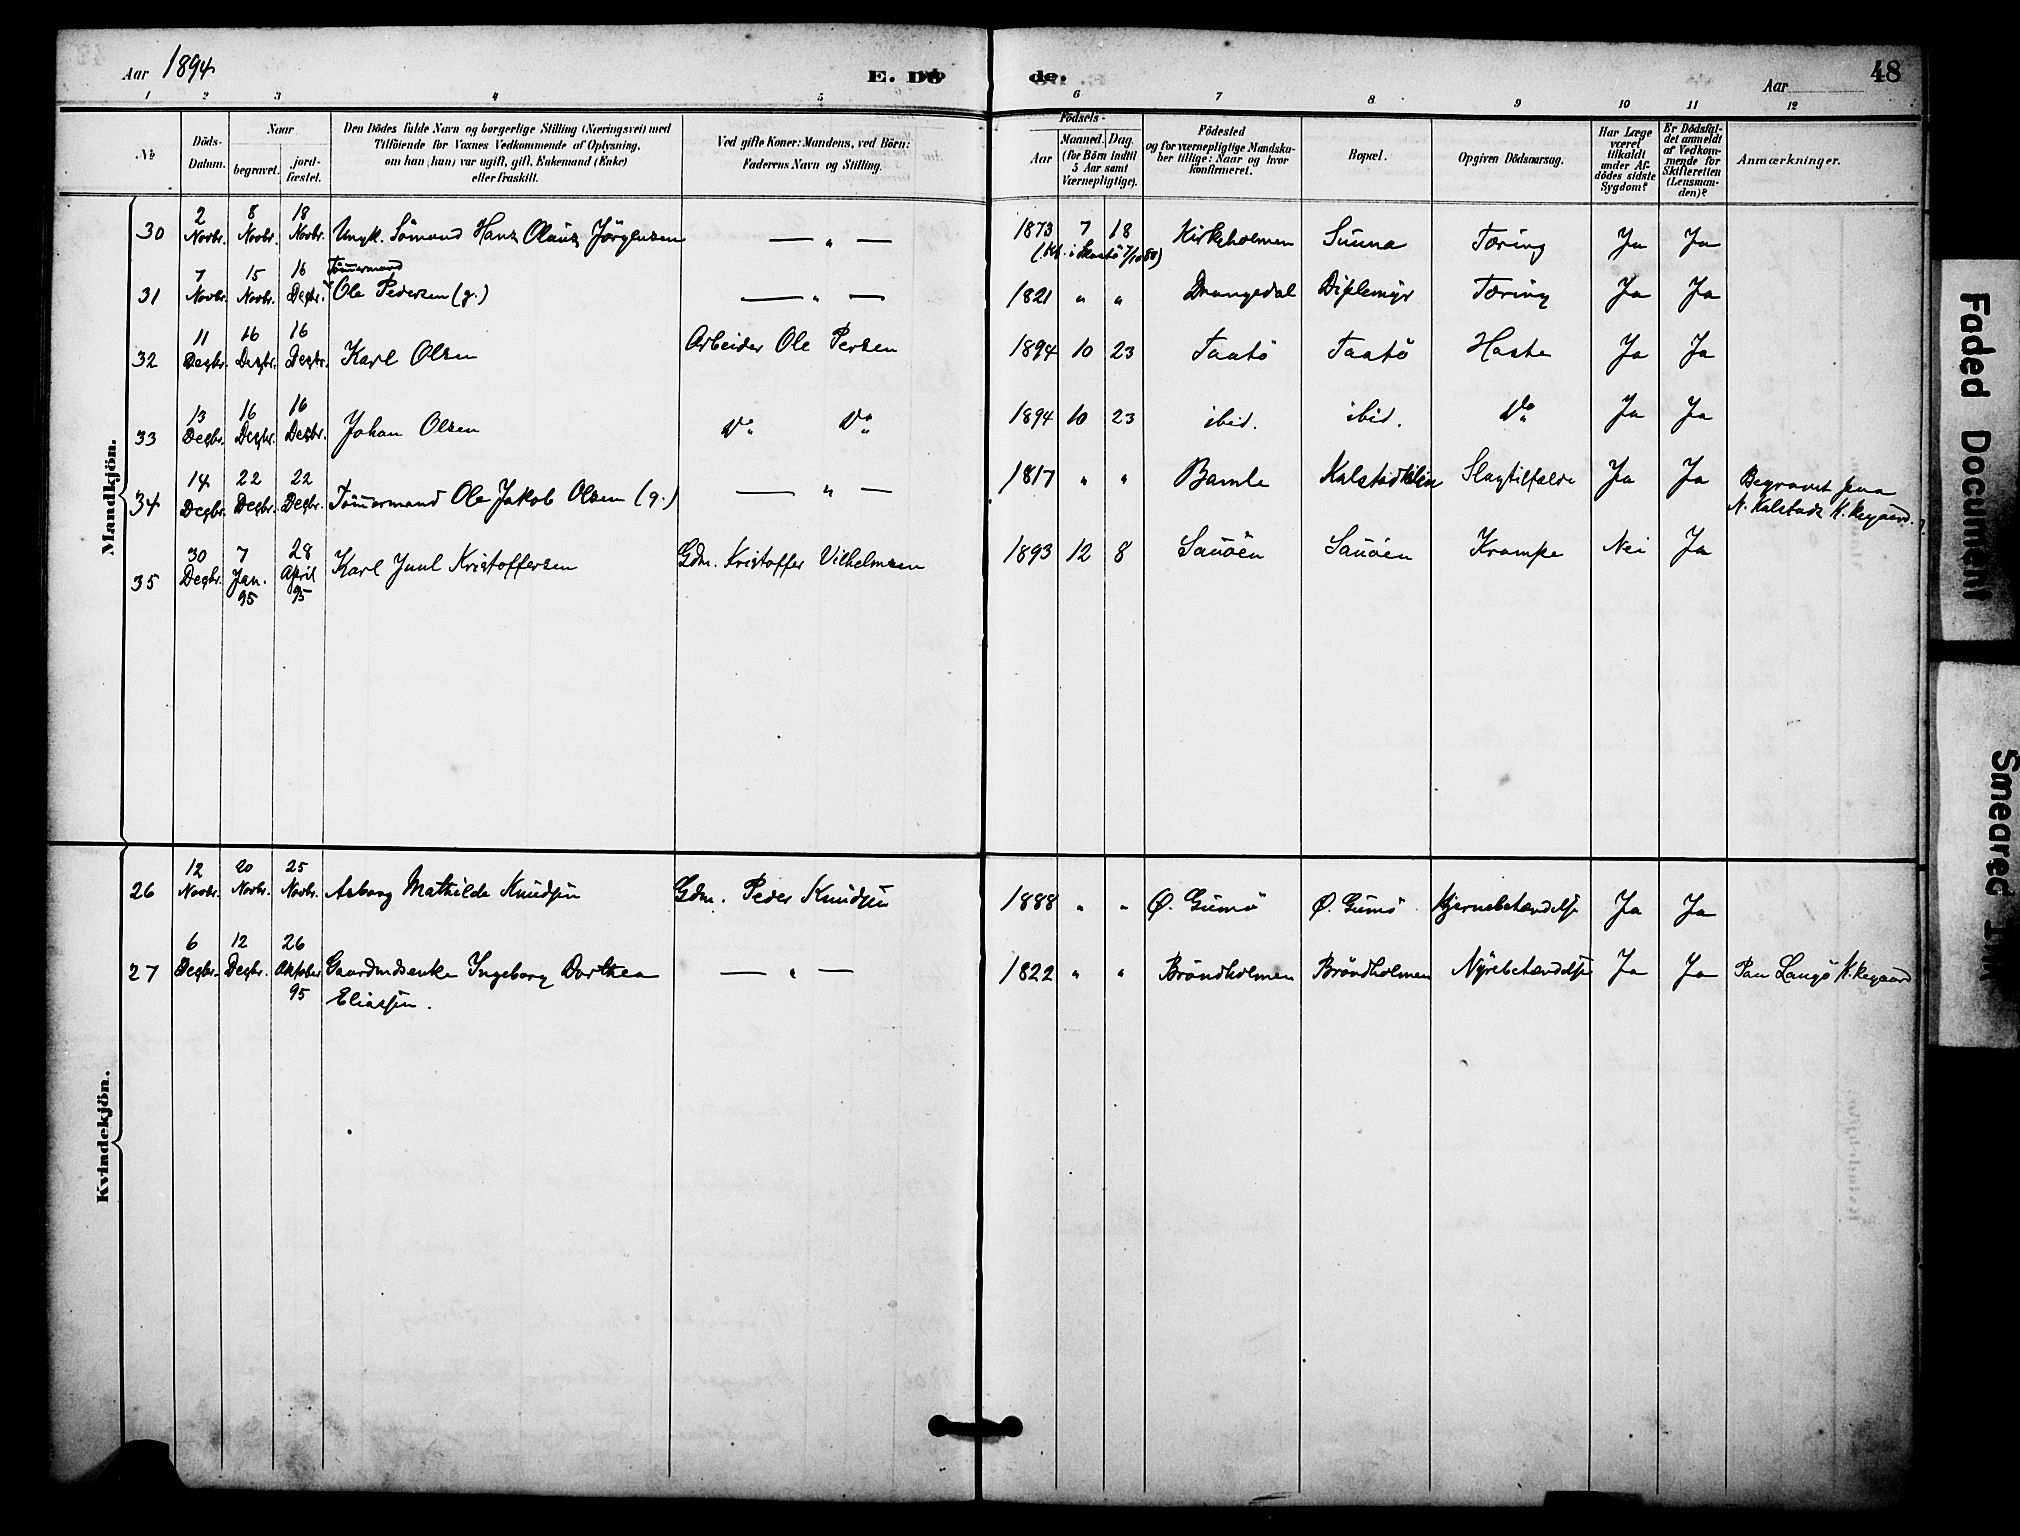 Aar 1894
E. Dö
de.
Aar
48
1 2 3 4 5 6 7 8 9 10 11 12
No
Döds-Datum.
Naar
begravet.
jord-fæstet.
Den Dödes fulde Navn og borgerlige Stilling (Næringsvei) med
Tilföiende for Voxnes Vedkommende af Oplysning,
om han (hun) var ugift, gift, Enkemand (Enke)
eller fraskilt.
Ved gifte Koner: Mandens, ved Börn:
Faderens Navn og Stilling.
Födsels-
Aar
Maaned. Dag.
(for Börn indtil
5 Aar samt
Værnepligtige).
Födested
og for værnepligtige Mandska-
ber tillige: Naar og hvor
konfirmeret.
Bopæl.
Opgiven Dödsaarsag.
Har Læge
været
tilkaldt
under Af-
dödes sidste
Sygdom?
Er Dödsfal-
det anmeldt
af Vedkom-
mende for
Skifteretten
(Lensman-
den)?
Anmærkninger.
Mandkjön.
30 2 Novbr. 8 Novbr. 18 Novbr. Ungk. Sömand Hans Olaus Jörgensen — " — 1873 7 18 Kirkeholmen Sunna Tæring Ja Ja
31 7 Novbr. 15 Novbr. 16 Decbr. Tömmermand Ole Pedersen (g.) — " — 1821 " " Drangedal Diplemyr Tæring Ja Ja
32 11 Decbr. 16 Decbr. 16 Decbr. Karl Olsen Arbeider Ole Persen 1894 10 23 Taatö Taatö Hoste Ja Ja
33 13 Decbr. 16 Decbr. 16 Decbr. Johan Olsen Do Do 1894 10 23 ibid. ibid. Do Ja Ja
34 14 Decbr. 22 Decbr. 22 Decbr. Tömmermand Ole Jakob Olsen (g.) — " — 1817 " " Bamle Kalstadkilen Slagtilfælde Ja Ja Begravet paa
N. Kalstads K.kegaard.
35 30 Decbr. 7 Jan. 95 28 April 95 Karl Juul Kristoffersen Gdm. Kristoffer Vilhelmsen 1893 12 8 Sauöen Sauöen Krampe Nei Ja
Kvindekjön.
26 12 Novbr. 20 Novbr. 25 Novbr. Asborg Mathilde Knudsen Gdm. Peder Knudsen 1888 " " Ø. Gumö Ø. Gumö Hjernebetændelse Ja Ja
27 6 Decbr. 12 Decbr. 26 Oktober 95 Gaardmdsenke Ingeborg Dorthea — " — 1822 " " Bröndholmen Bröndholmen Nyrebetændelse Ja Ja Paa Langö K.kegaard
Eliassen.
Faded Document
Smeared Ink